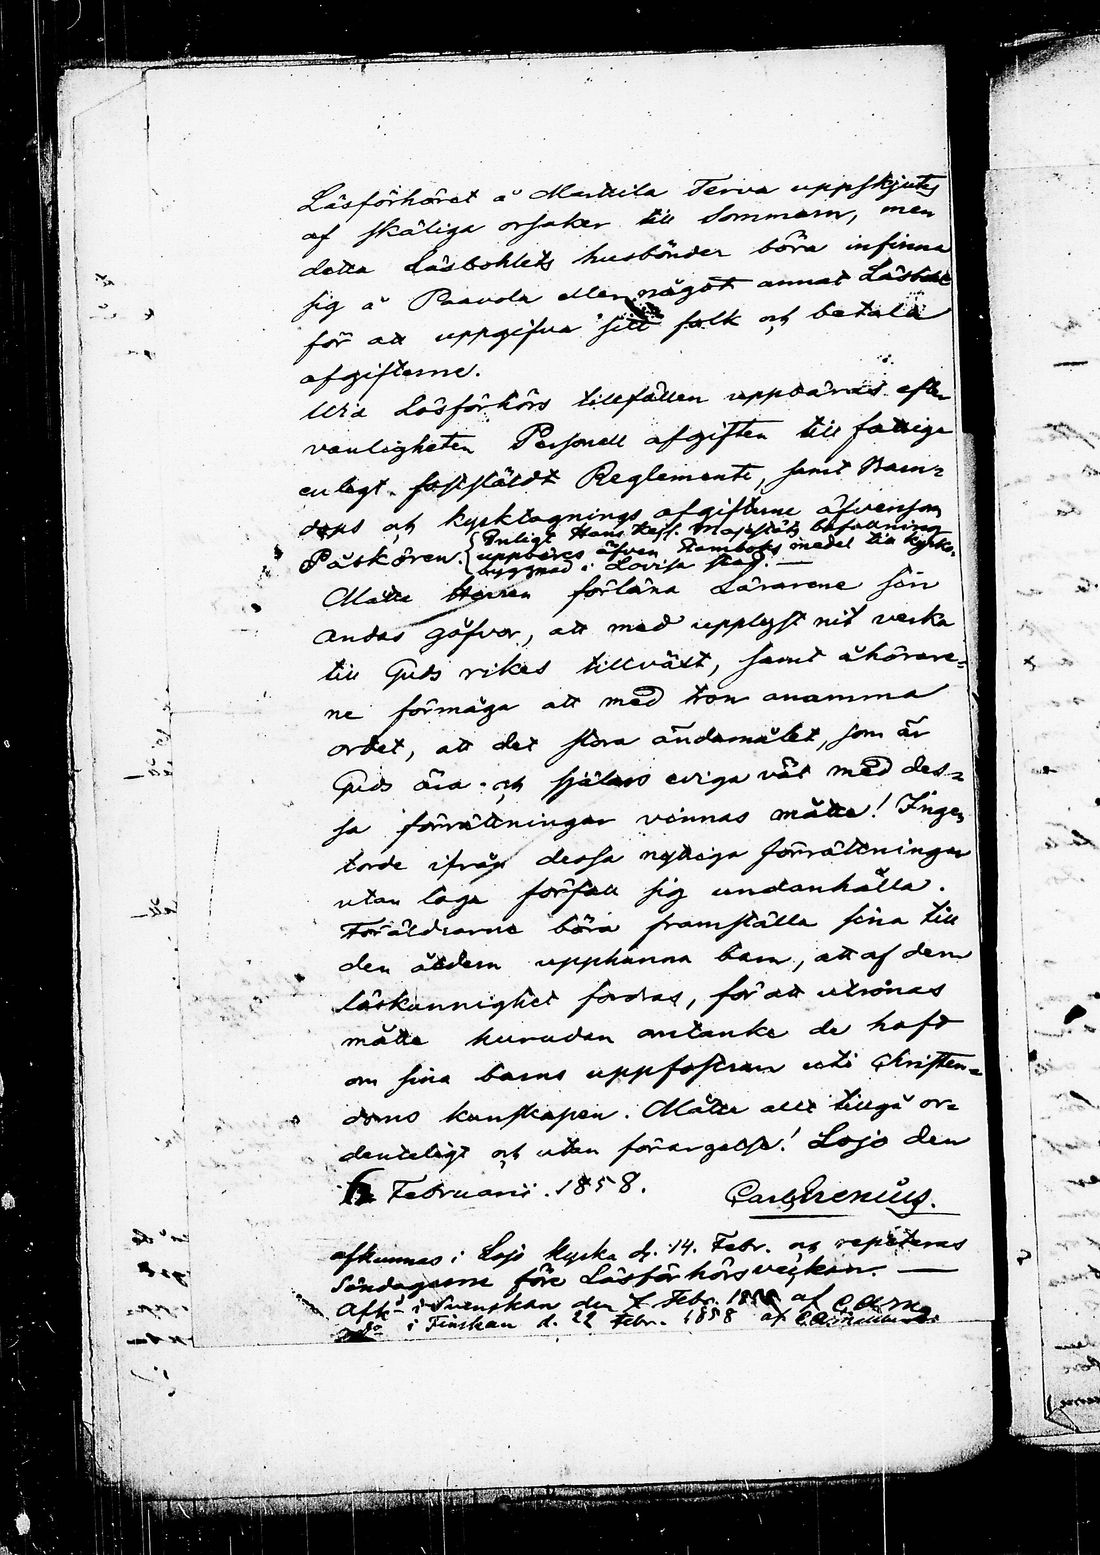 Läsförhöret å Marttila Terva uppskjutes
af skäliga orsaker till Sommarn, men
detta Läsbohlets husbönder böra infinna
sig å Paavola eller något annat Läsbohl
för att uppgifva sitt folk och betala
afgifterne.
Wid Läsförhörs tillfällen uppbäras efter
vanligheten Personell afgiften till fattiga
enlegt fastställdt Reglemente, samt Barn-
dops och kyrktagnings afgifterne äfvensom
Påskören. Enligt Hans Kejs. Majestäts befallning
uppbäres äfven Stamboks medel till kyrko-
byggnad i Lovisa stad. —
Måtte Herren förläna Lärarene sin
andas gåfvor, att med upplyst nit verka
till Guds rikes tillväxt, samt åhörare-
ne förmåga att med tron anamma
ordet, att det stora ändamålet, som är
Guds ära och själars eviga väl med des-
sa förrättningar vinnas måtte! Ingen
torde ifrån dessa nyttiga förrättningar
utan laga förfall sig undanhålla.
Föräldrarne böra framställa sina till
den åldern upphunna barn, att af dem
läskunnighet fordras, för att utrönas
måtte hurudan omtanke de haft
om sina barns uppfostran uti Christen-
doms kunskapen. Måtte allt tillgå or-
denteligt och utan förargelse! Lojo den
Februarii. 1858. Carl Grenius.
afkunnas i Lojo kyrka d. 14. Febr. och repeteras
Söndagarne före Läsförhörsveckan. —
Afk. i Svenskan den 7 Febr. af
i Finskan d. 22 Febr. 1858 af